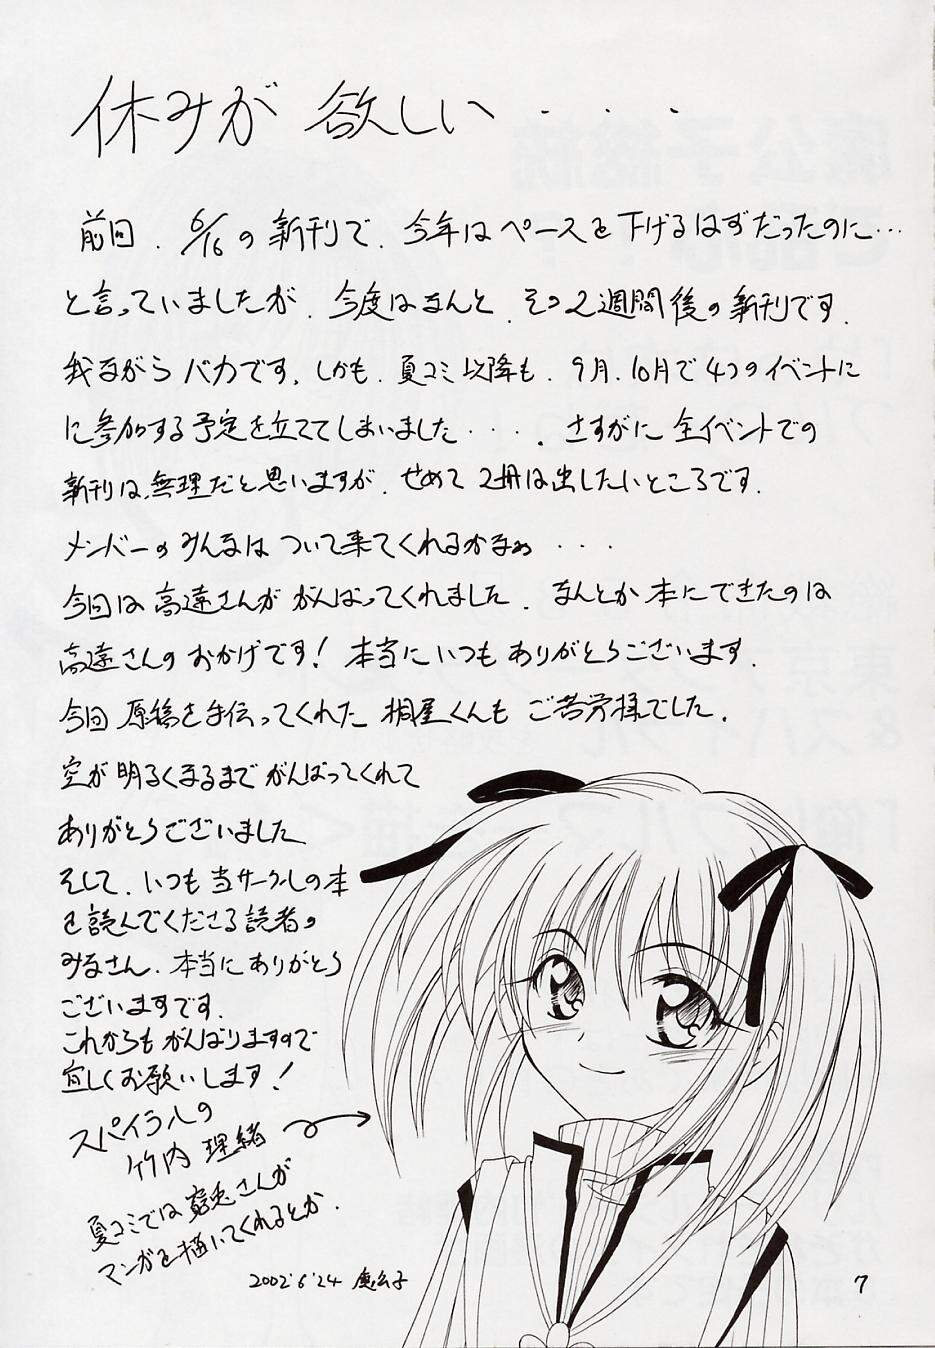 休みが 欲しい ・・・
前回、6/16の新刊で、今年はペースを下げるはずだったのに…
と言っていましたが、今度はなんと、その2週間後の新刊です。
我ながらバカです。しかも、夏コミ以降も、9月、10月で4つのイベントに
に参加する予定を立ててしまいました・・・・。さすがに全イベントでの
新刊は、無理だと思いますが、せめて2冊は出したいところです。
メンバーのみんなはついて来てくれるかなぁ・・・
今回は高遠さんががんばってくれました。なんとか本にできたのは
高遠さんのおかげです!本当にいつもありがとうございます。
今回原稿を手伝ってくれた桐屋くんもご苦労様でした。
空が明るくなるまでがんばってくれて
ありがとうございました
そして、いつも当サークルの本
を読んでくださる読者の
みなさん、本当にありがとう
ございますです。
これからもがんばりますので
宜しくお願いします!
スパイラルの
竹内 理緒
夏コミでは 兎さんが
マンガを描いてくれるとか。
2002'6'24
7